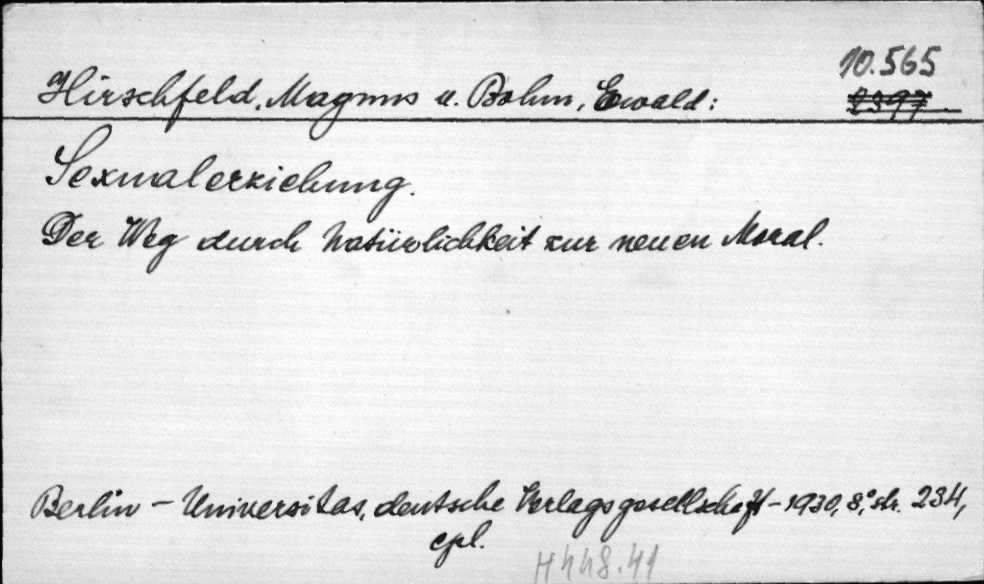 10.565
Hirschfeld, Magnus u. Bohm, Ewald:
2397
Sexualerziehung.
Der Weg durch Natürlichkeit zur neuen Moral.
Berlin – Universitas, deutsche Verlagsgesellschaft – 1930, 8°, str. 234,
cpl.
H 448.41